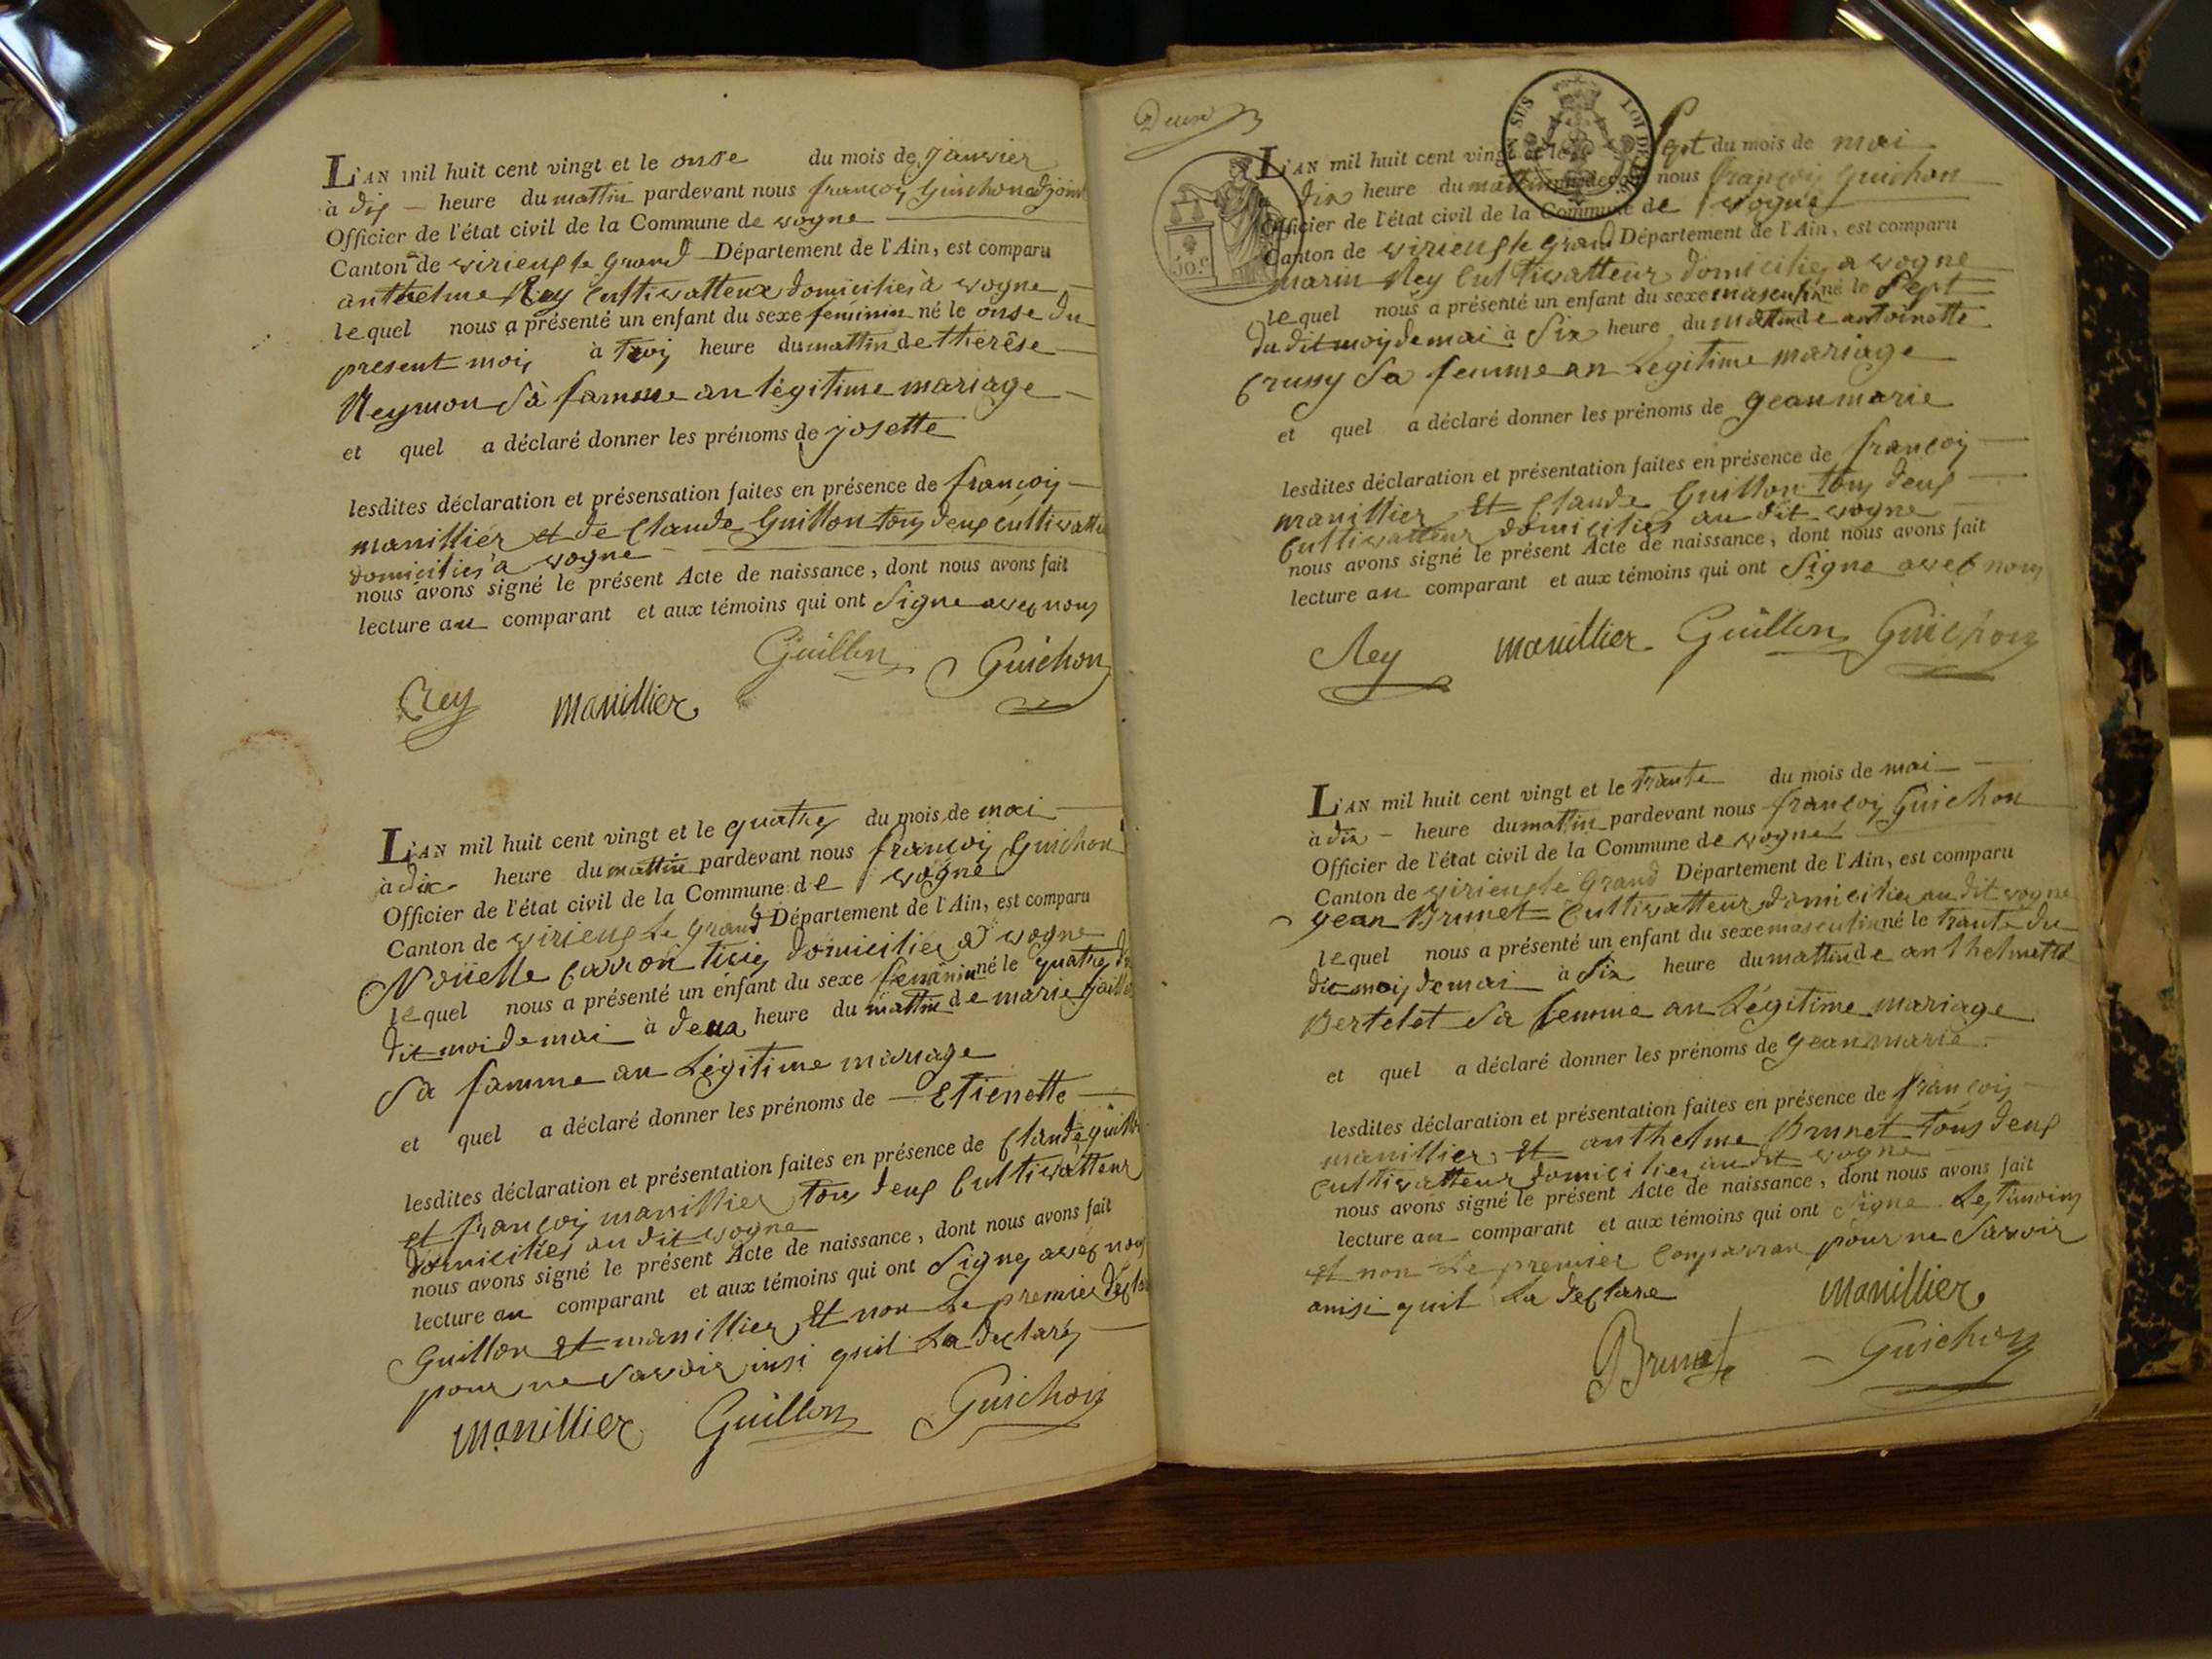 L'AN mil huit cent vingt et le onse du mois de janvier
à dix heure du mattin pardevant nous françois Guichon adjoint
Officier de l'état civil de la Commune de vogne
Canton de virieux le grand Département de l'Ain, est comparu
anthelme Rey cultivatteur domicilié à vogne
lequel nous a présenté un enfant du sexe féminin né le onse du
present mois à trois heure du mattin de therèse
Reymon sà famme an légitime mariage
et quel a déclaré donner les prénoms de josette
lesdites déclaration et présensation faites en présence de françois
manillier et de Claude Guillon tous deux cultivatteur
domicilies a vogne
nous avons signé le présent Acte de naissance, dont nous avons fait
lecture au comparant et aux témoins qui ont signe avec nous
Guillon Guichon
Rey manillier
L'AN mil huit cent vingt et le quatre du mois de mai
à dix heure du mattin pardevant nous françois Guichon
Officier de l'état civil de la Commune de vogne
Canton de virieux le grand Département de l'Ain, est comparu
Noüelle carron domicilié a vogne
lequel nous a présenté un enfant du sexe feminin né le quatre du
dit moi de mai à deux heure du mattin de marie
sa famme an légitime mariage
et quel a déclaré donner les prénoms de Etienette
lesdites déclaration et présentation faites en présence de Claude guillon
et françois manillier tous deux cultivatteur
domicilies au dit vogne
nous avons signé le présent Acte de naissance, dont nous avons fait
lecture au comparant et aux témoins qui ont signe avec nous
Guillon et manillier et non le premier
pour ne savoir insi quil la declaré
manillier Guillon Guichon
Deux
SUS LOI DE
50.c
L'AN mil huit cent vingt et le sept du mois de mai
a dix heure du mattin pardevant nous françois guichon
Officier de l'état civil de la Commune de vogne
Canton de virieux le grand Département de l'Ain, est comparu
marin Rey cultivatteur domicilié a vogne
lequel nous a présenté un enfant du sexe masculin né le sept
du dit mois de mai à six heure du mattin de antoinette
crussy sa femme an legitime mariage
et quel a déclaré donner les prénoms de geanmarie
lesdites déclaration et présentation faites en présence de françois
manillier et Claude Guillon tous deux
cultivatteur domicilies au dit vogne
nous avons signé le présent Acte de naissance, dont nous avons fait
lecture au comparant et aux témoins qui ont signe avec nous
Rey manillier Guillon Guichon
L'AN mil huit cent vingt et le trante du mois de mai
à dix heure du mattin pardevant nous françois Guichon
Officier de l'état civil de la Commune de vogne
Canton de virieux le grand Département de l'Ain, est comparu
gean Brunet cultivatteur domicilié au dit vogne
lequel nous a présenté un enfant du sexe masculin né le trante du
dit mois de mai à six heure du mattin de anthelmette
Bertelet sa femme an légitime mariage
et quel a déclaré donner les prénoms de geanmarie
lesdites déclaration et présentation faites en présence de françois
manillier et anthelme Brunet tous deux
cultivatteur domicilies au dit vogne
nous avons signé le présent Acte de naissance, dont nous avons fait
lecture au comparant et aux témoins qui ont signe les témoins
et non le premier comparran pour ne savoir
anisi quil la declare
manillier
Brunet Guichon